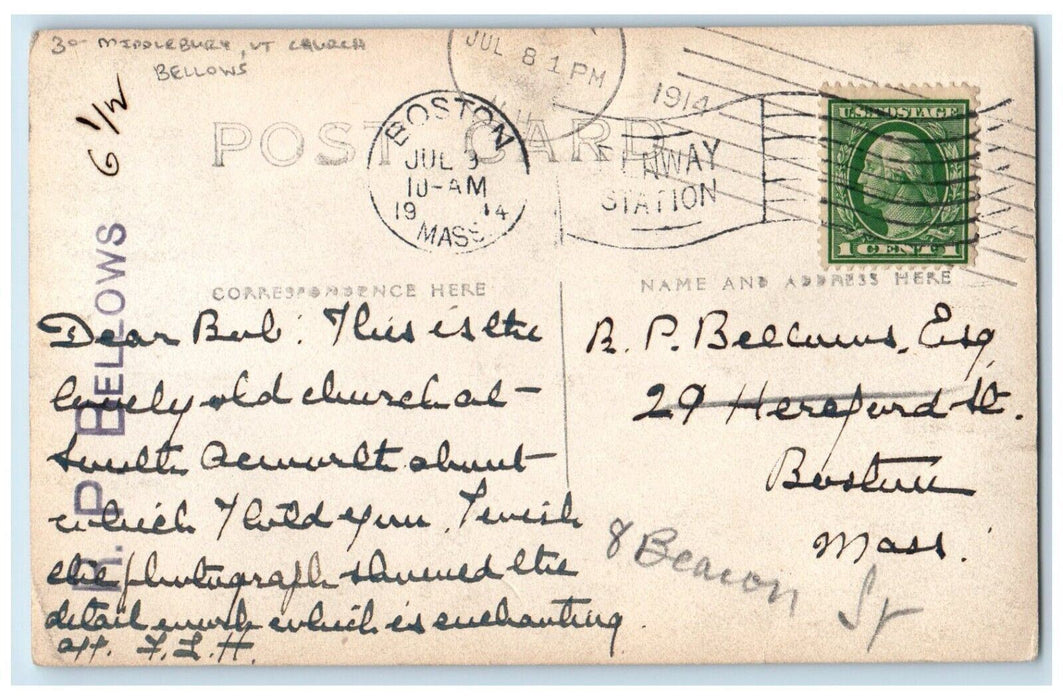 30- MIDDLEBURY, VT CHURCH
BELLOWS
6 1/2
R. P BELLOWS
POST CARD
JUL 8 1 PM
1914
BOSTON
JUL 9
10-AM
19 14
MASS.
FENWAY
STATION
U.S. POSTAGE
1 CENT 1
CORRESPONDENCE HERE
NAME AND ADDRESS HERE
Dear Bob: This is the
lovely old church at
South Acworth about
which I told you. I wish
the photograph showed the
detail work which is enchanting.
aff. F. L. H.
R. P. Bellows, Esq
29 Hereford St.
Boston
Mass.
8 Beacon St